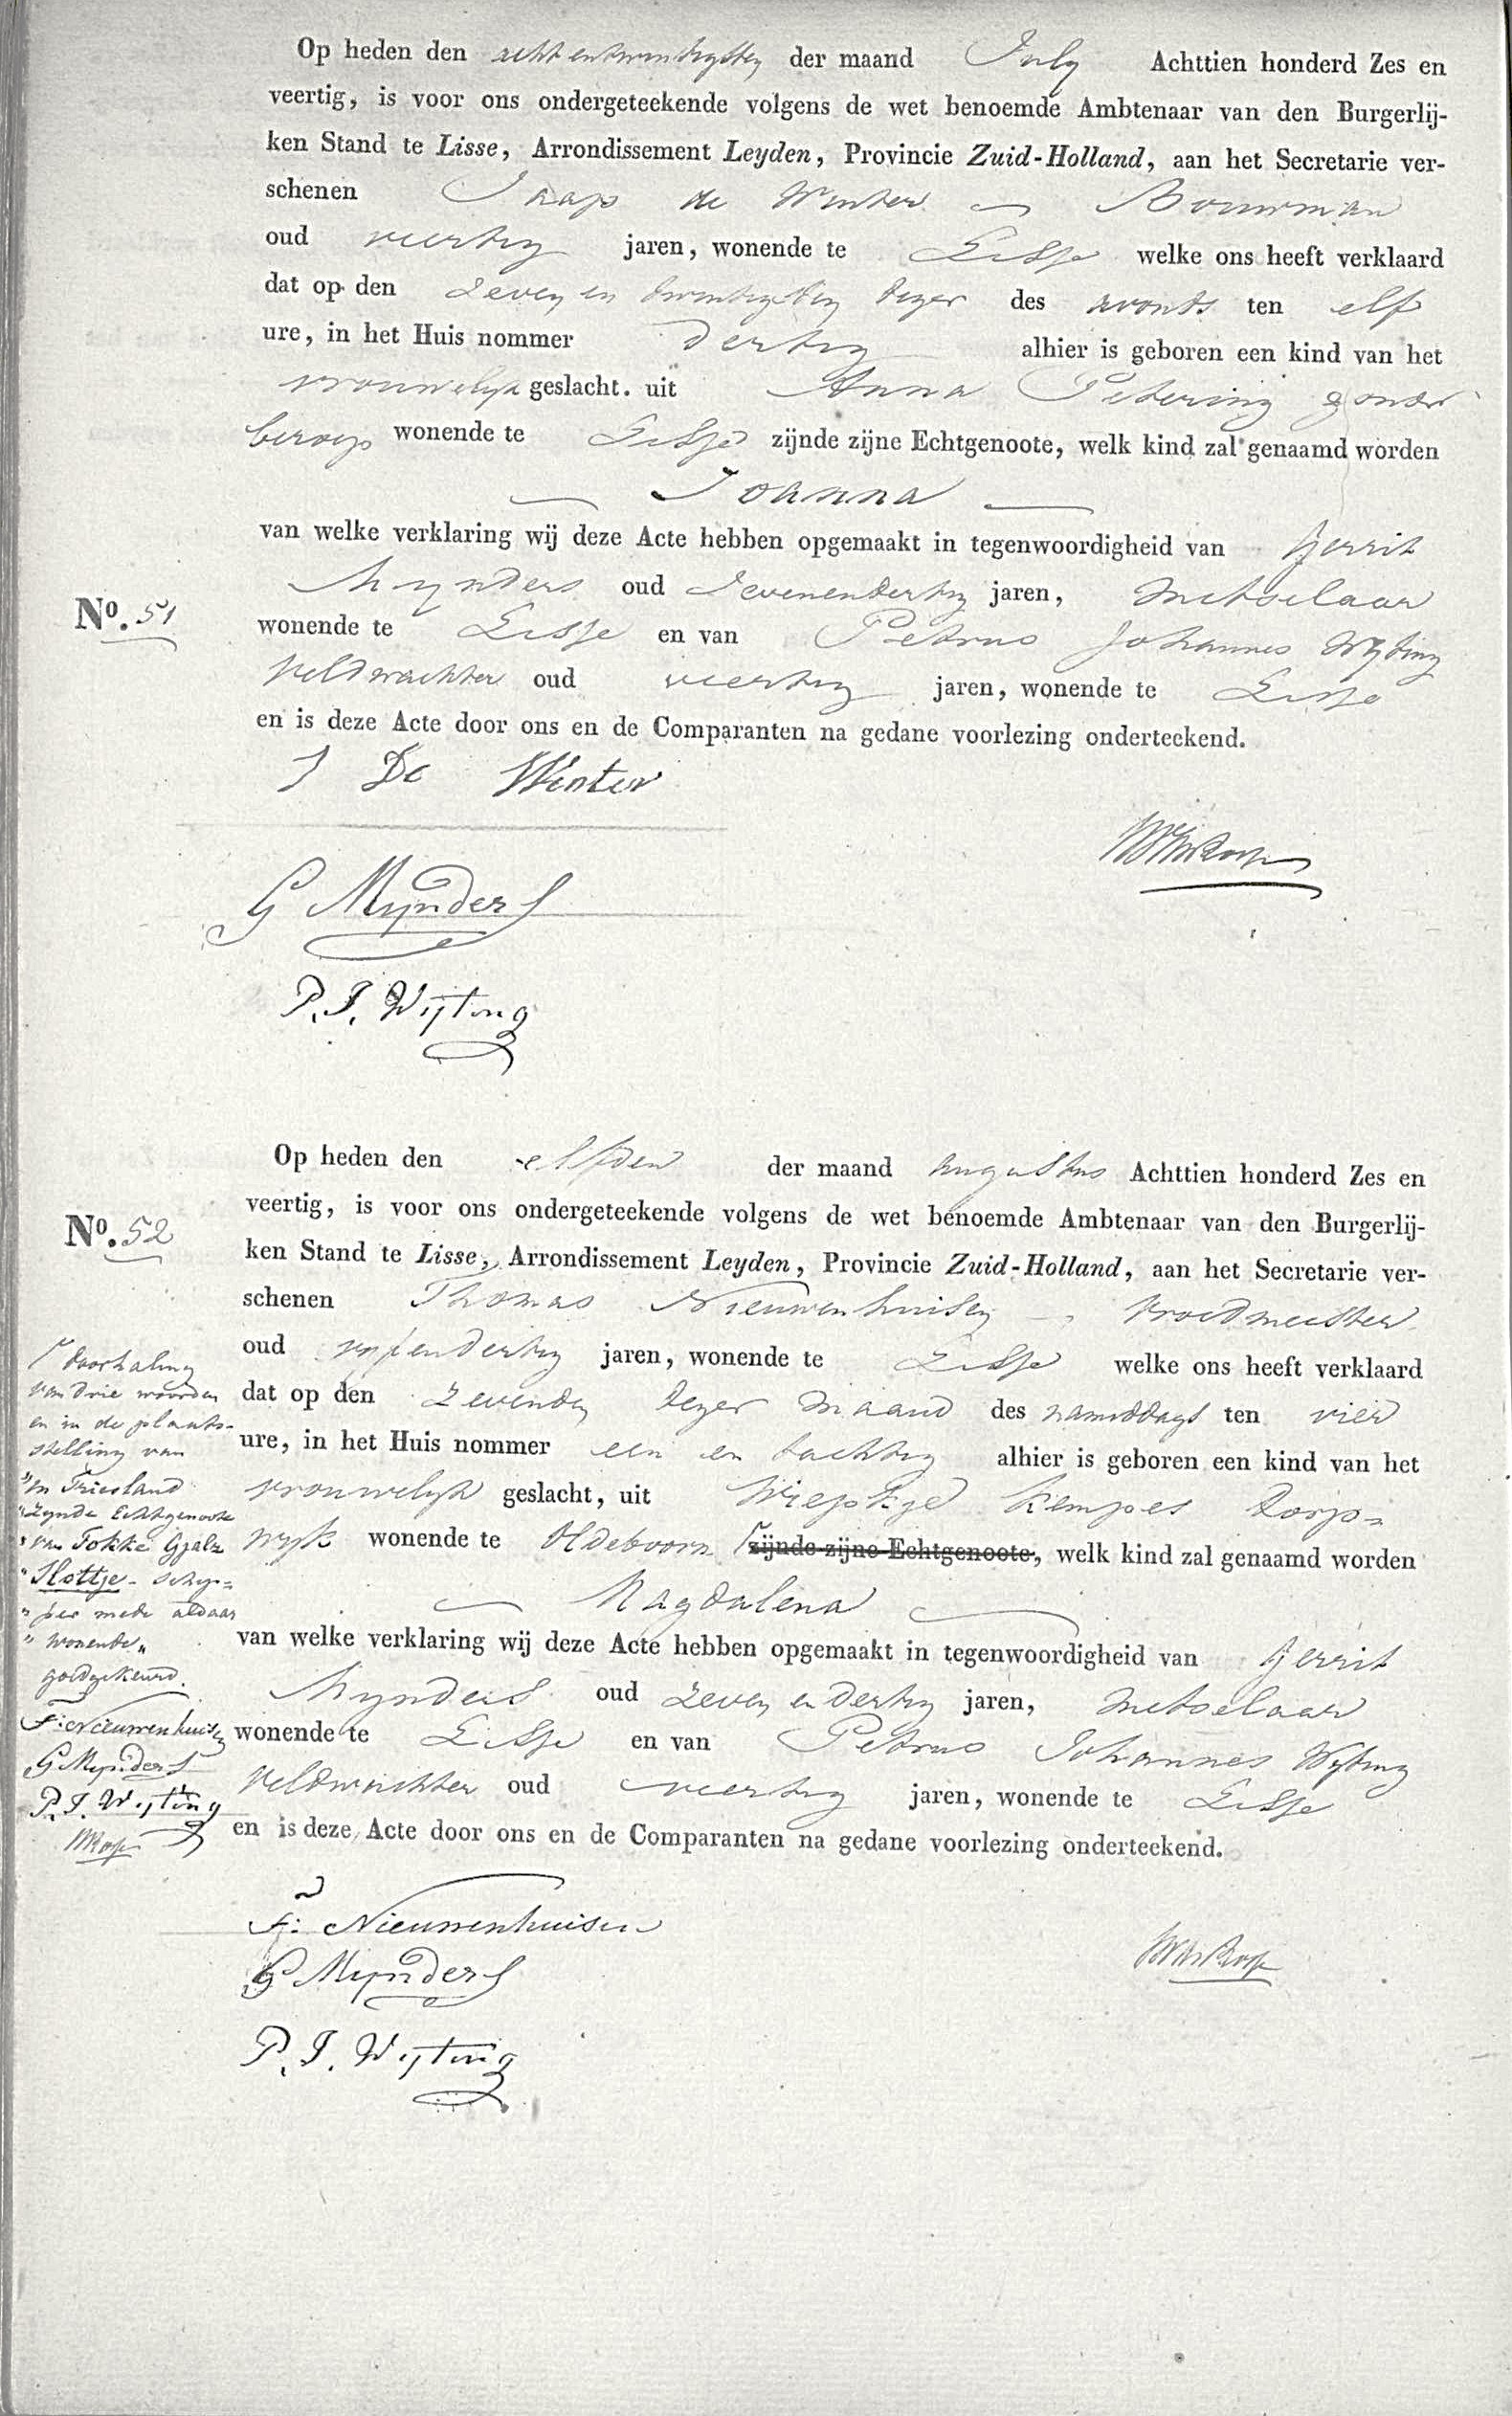 Op heden den acht en twintigsten der maand July Achttien honderd Zes en
veertig, is voor ons ondergeteekende volgens de wet benoemde Ambtenaar van den Burgerlij-
ken Stand te Lisse, Arrondissement Leyden, Provincie Zuid-Holland, aan het Secretarie ver-
schenen Jaap de Winter Bouwman
oud veertig jaren, wonende te Lisse welke ons heeft verklaard
dat op den Zeven en twintigsten dezer des avonds ten elf
ure, in het Huis nommer dertig alhier is geboren een kind van het
vrouwelijk geslacht. uit Anna Petering zonder
beroep wonende te Lisse zijnde zijne Echtgenoote, welk kind zal genaamd worden
Joanna
van welke verklaring wij deze Acte hebben opgemaakt in tegenwoordigheid van Gerrit
No. 51
Mynders oud Zevenendertig jaren, metselaar
wonende te Lisse en van Petrus Johannes Wijting
Veldwachter oud veertig jaren, wonende te Lisse
en is deze Acte door ons en de Comparanten na gedane voorlezing onderteekend.
J De Winter
G Mynders
P. J. Wijting
Op heden den elfden der maand Augustus Achttien honderd Zes en
No. 52
veertig, is voor ons ondergeteekende volgens de wet benoemde Ambtenaar van den Burgerlij-
ken Stand te Lisse, Arrondissement Leyden, Provincie Zuid-Holland, aan het Secretarie ver-
schenen Thomas Nieuwenhuisen Vroedmeester
oud vyfendertig jaren, wonende te Lisse welke ons heeft verklaard
dat op den Zevenden dezer maand des namiddags ten vier
ure, in het Huis nommer een en tachtig alhier is geboren een kind van het
vrouwelyk geslacht, uit Wiepkje Kempes Dorp=
wyk wonende te Oldeboorn zijnde zijne Echtgenoote, welk kind zal genaamd worden
Magdalena
van welke verklaring wij deze Acte hebben opgemaakt in tegenwoordigheid van Gerrit
Mynders oud zeven en dertig jaren, metselaar
wonende te Lisse en van Petrus Johannes Wijting
Veldwachter oud veertig jaren, wonende te Lisse
en is deze Acte door ons en de Comparanten na gedane voorlezing onderteekend.
doorhaling
van drie woorden
en in de plaats-
stelling van
"in Friesland
"zynde Echtgenoote
"van Fokke Gjalts
"Slottje - schip=
"per mede aldaar
"wonende"
goedgekeurd.
F: Nieuwenhuisen
G Mynders
P. J. Wijting
F: Nieuwenhuisen
G Mynders
P. J. Wijting